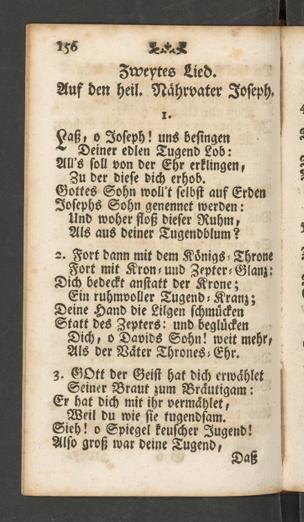 156
Zweytes Lied.
Auf den heil. Nährvater Joseph.
1.
Laß, o Joseph! uns besingen
Deiner edlen Tugend Lob:
All's soll von der Ehr erklingen,
Zu der diese dich erhob.
Gottes Sohn woll't selbst auf Erden
Josephs Sohn genennet werden:
Und woher floß dieser Ruhm,
Als aus deiner Tugendblum?
2. Fort dann mit dem Königs-Throne
Fort mit Kron- und Zepter-Glanz:
Dich bedeckt anstatt der Krone;
Ein ruhmvoller Tugend-Kranz;
Deine Hand die Lilgen schmücken
Statt des Zepters: und beglücken
Dich, o Davids Sohn! weit mehr,
Als der Väter Thrones-Ehr.
3. GOtt der Geist hat dich erwählet
Seiner Braut zum Bräutigam:
Er hat dich mit ihr vermählet,
Weil du wie sie tugendsam.
Sieh! o Spiegel keuscher Jugend!
Also groß war deine Tugend,
Daß